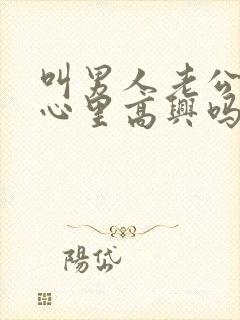 叫男人老公
心里高興吗
陽岱